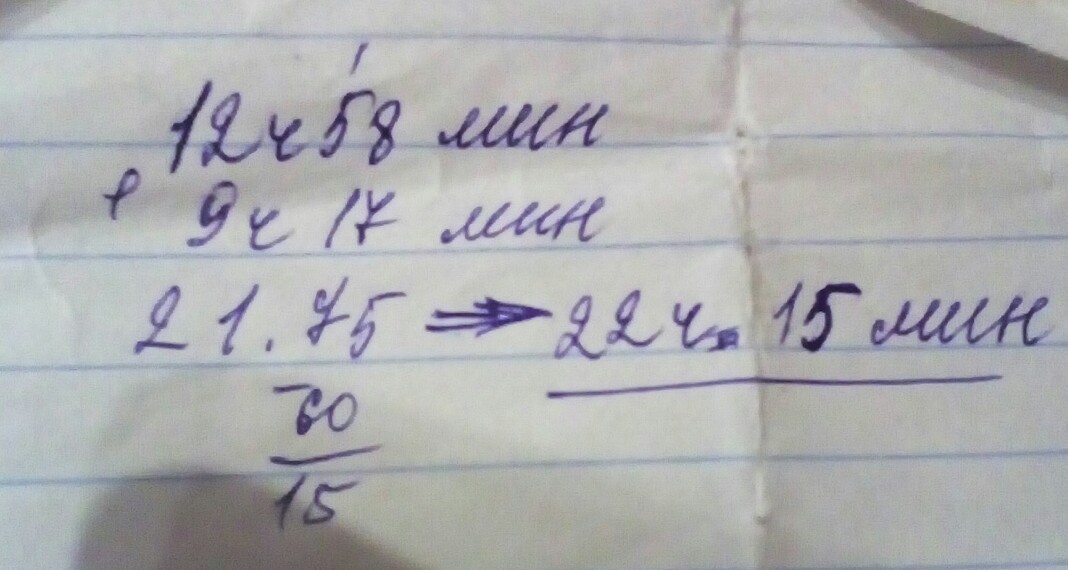 1
12ч 58 мин
+ 9ч 17 мин
21.75 ⇒ 22ч. 15 мин
-60
15